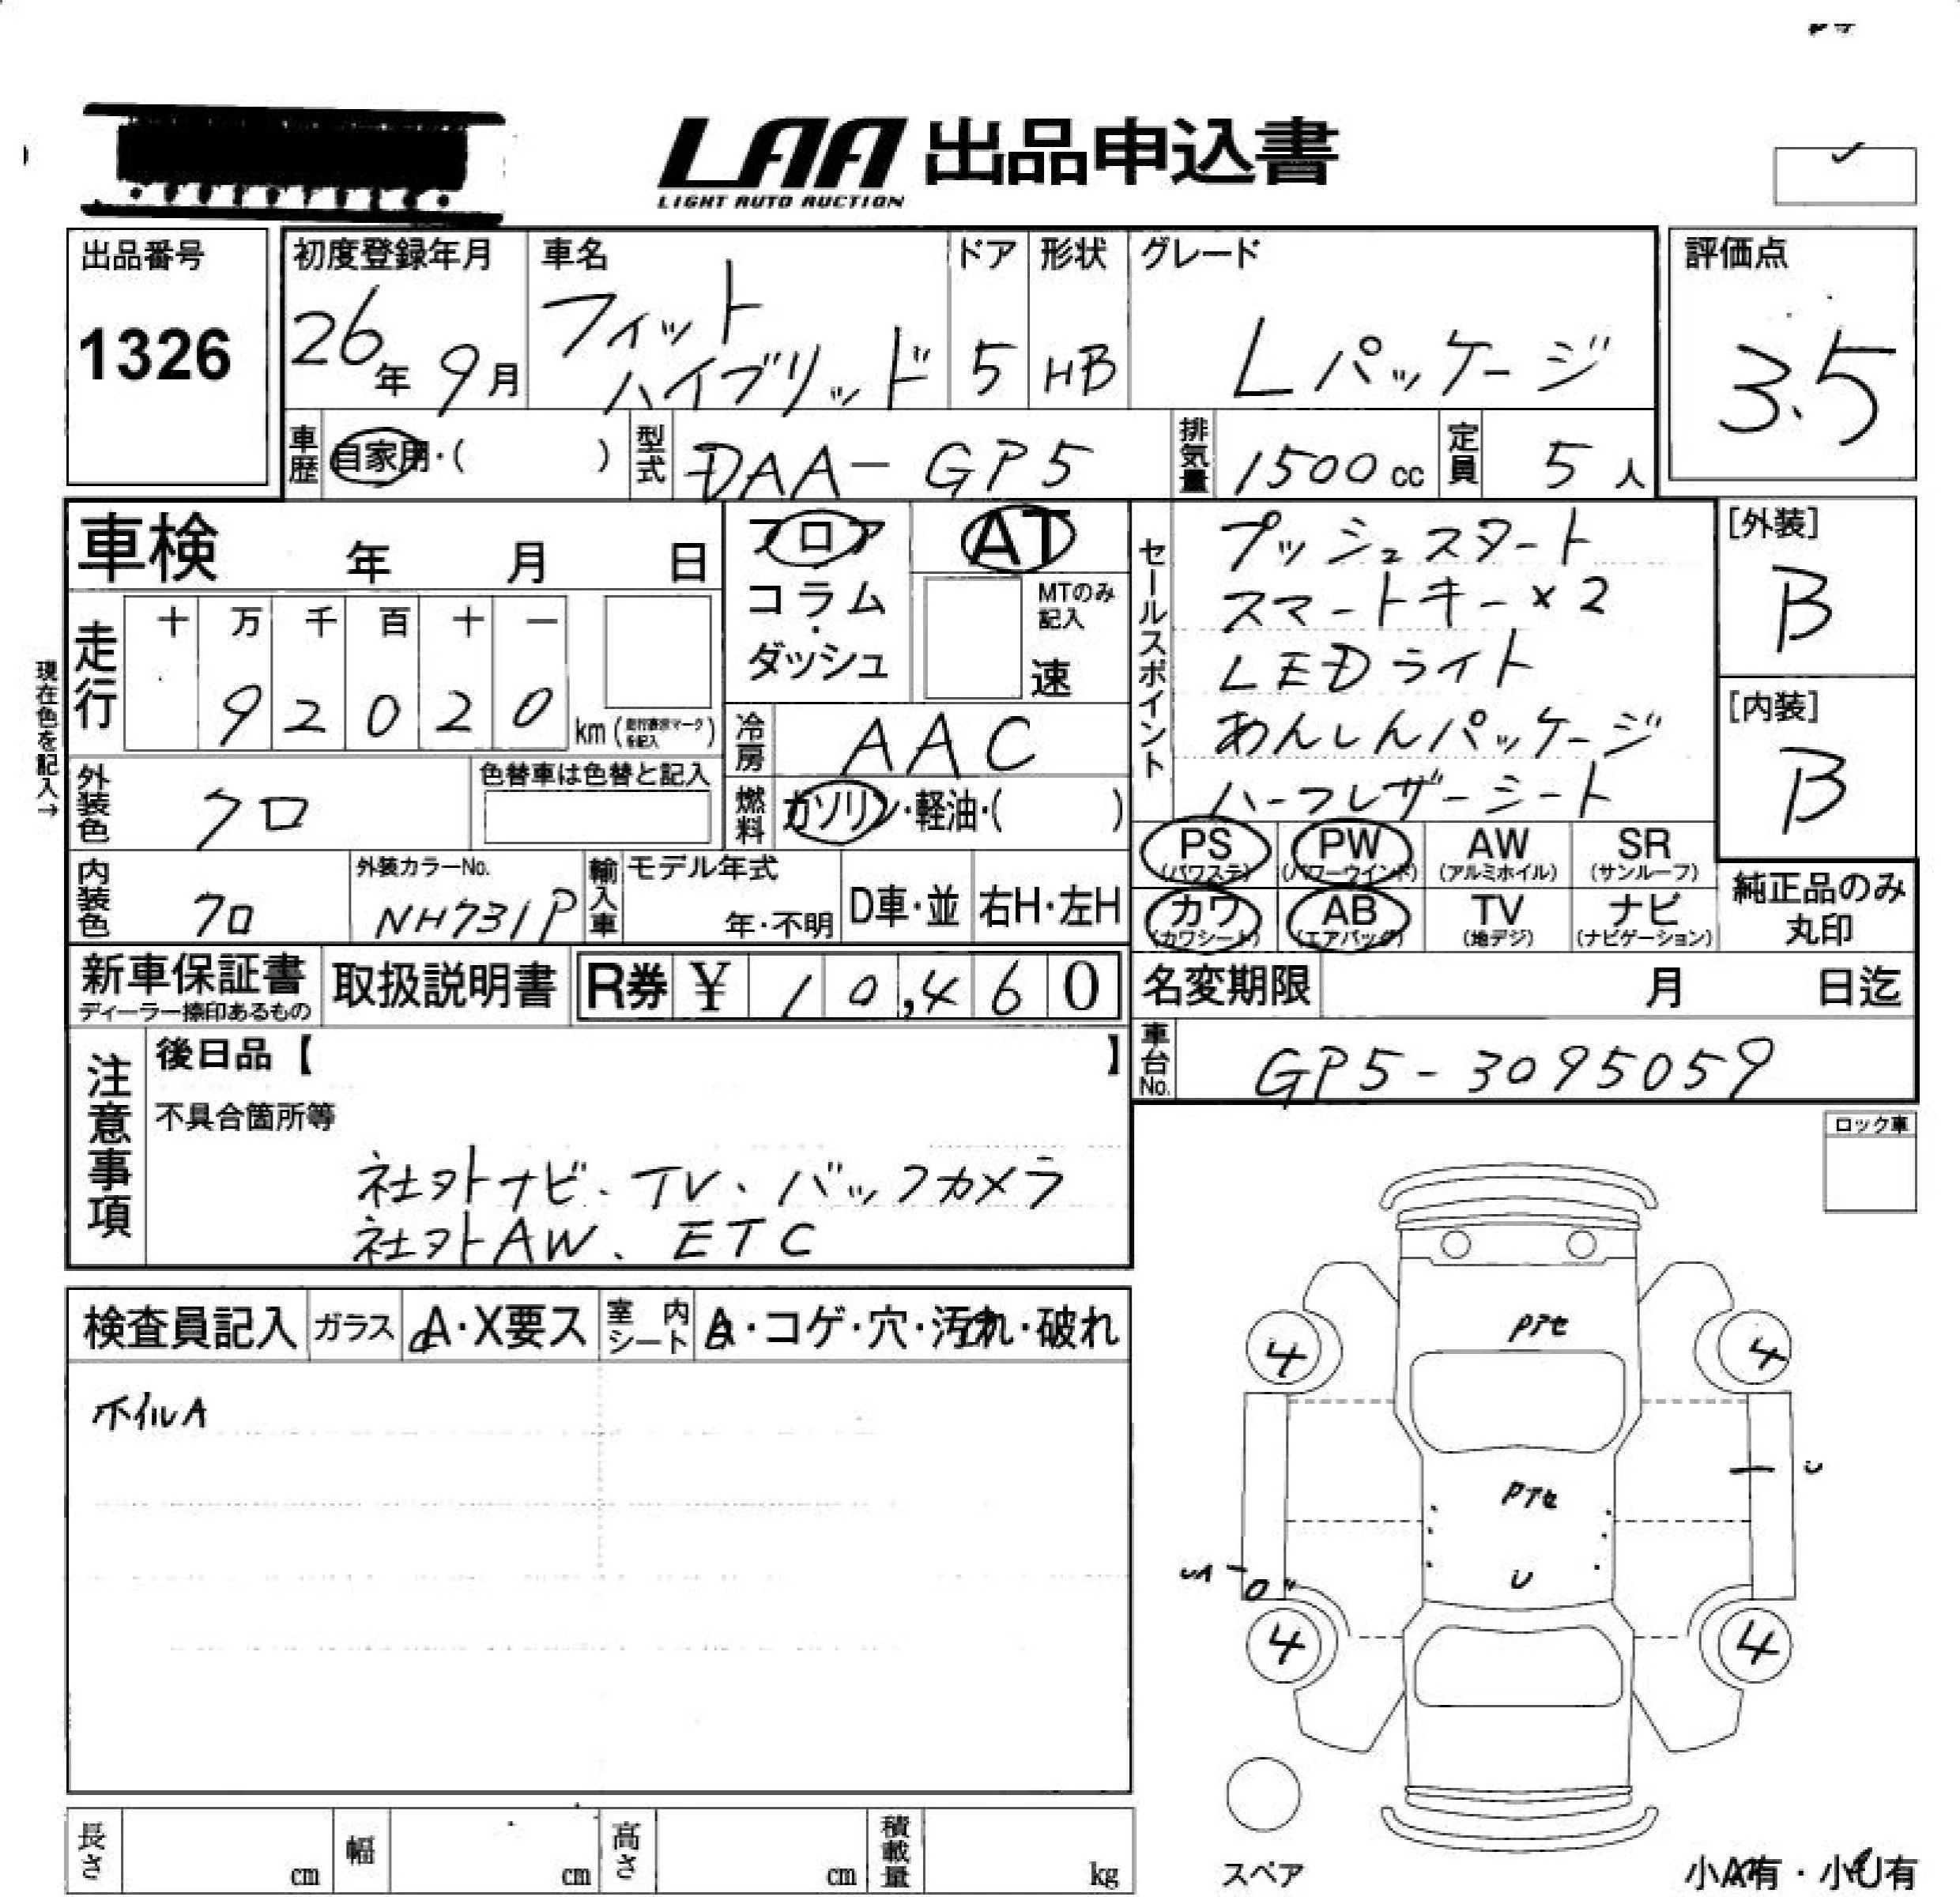 LAA 出品申込書
LIGHT AUTO AUCTION
出品番号
1326
初度登録年月
26年 9月
車名
フィット
ハイブリッド
ドア
5
形状
HB
グレード
Lパッケージ
評価点
3.5
車歴
自家用・( )
型式
DAA-GP5
排気量
1500cc
定員
5人
車検 年 月 日
フロア
コラム
・
ダッシュ
AT
MTのみ
記入
速
セールスポイント
プッシュスタート
スマートキー×2
LEDライト
あんしんパッケージ
ハーフレザーシート
[外装]
B
[内装]
B
現在色を記入→
走行
十 万 千 百 十 一
9 2 0 2 0 km (走行表示マークを記入)
冷房
AAC
外装色
クロ
色替車は色替と記入
燃料
ガソリン・軽油・( )
PS
(パワステ)
PW
(パワーウインド)
AW
(アルミホイル)
SR
(サンルーフ)
カワ
(カワシート)
AB
(エアバッグ)
TV
(地デジ)
ナビ
(ナビゲーション)
純正品のみ
丸印
内装色
クロ
外装カラーNo.
NH731P
輸入車
モデル年式
年・不明
D車・並
右H・左H
新車保証書
ディーラー捺印あるもの
取扱説明書
R券 ¥ 10,460
名変期限 月 日迄
車台No.
GP5-3095059
注意事項
後日品【 】
不具合箇所等
社外ナビ、TV、バックカメラ
社外AW、ETC
ロック車
検査員記入
ガラス
A・X要ス
室内
シート
・コゲ・穴・汚れ・破れ
ホイルA
PTセ
4 4
PTセ
U
U
4 4
スペア
長さ cm
幅 cm
高さ cm
積載量 kg
小A有・小U有